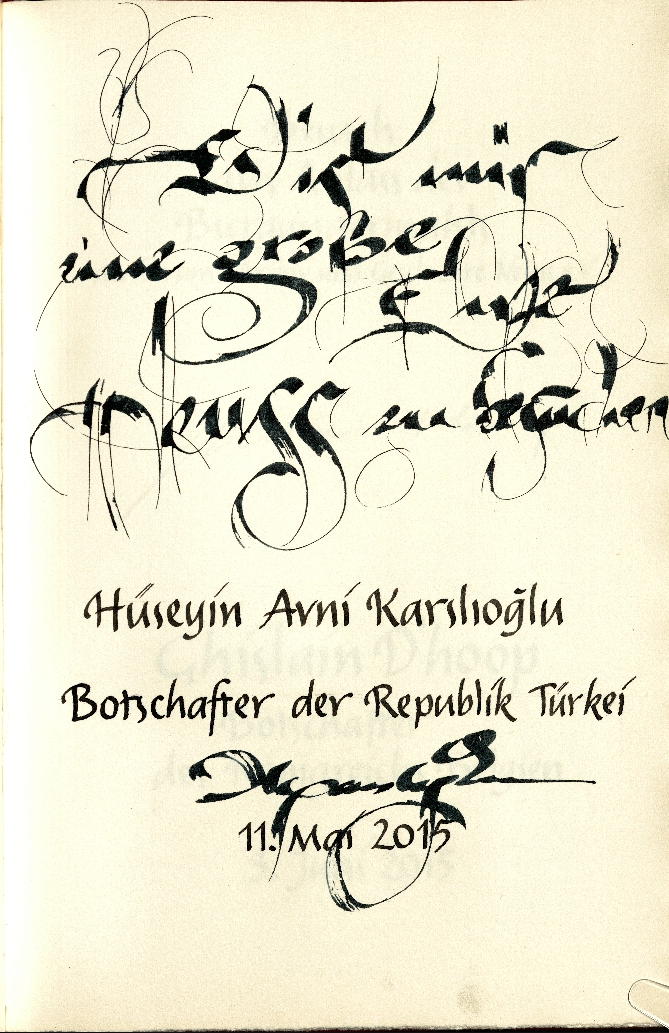 Es ist mir
eine große
Ehre
Neuss zu besuchen
Hüseyin Avni Karslıoğlu
Botschafter der Republik Türkei
11. Mai 2015